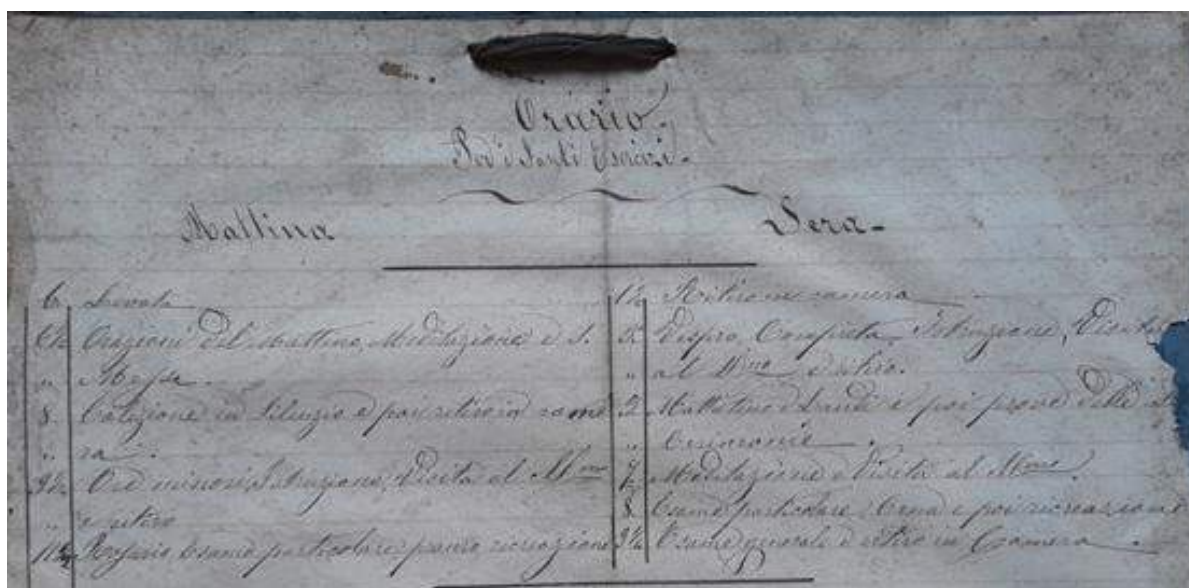 Orario
Per i Santi Esercizi
Mattina
6 Levata
6½ Orazioni del Mattino, Meditazione e S.
" Messa.
8. Colazione in Silenzio e poi ritiro in came
" ra.
9½ Ore minori, Istruzione, Visita al SSmo
" e ritiro
11¾ Rosario, Esame particolare, pranzo ricreazione
Sera
1½ Ritiro in camera
3. Vespro, Compieta, Istruzione, Visita
" al SSmo e ritiro.
5. Mattutino e Laudi e poi prove delle
" Cerimonie.
7. Meditazione e Visita al SSmo.
8. Esame particolare, Cena e poi ricreazione
9½ Esame generale e ritiro in Camera.